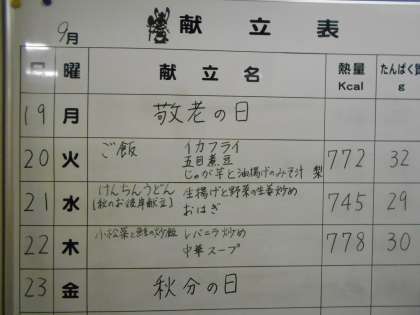 9月 献立表
日 曜 献立名 熱量 Kcal たんぱく質 g
19 月 敬老の日
20 火 ご飯 イカフライ 772 32
五目煮豆
じゃが芋と油揚げのみそ汁 梨
21 水 けんちんうどん 生揚げと野菜の生姜炒め 745 29
[秋のお彼岸献立] おはぎ
22 木 小松菜と鮭の炒飯 レバニラ炒め 778 30
中華スープ
23 金 秋分の日